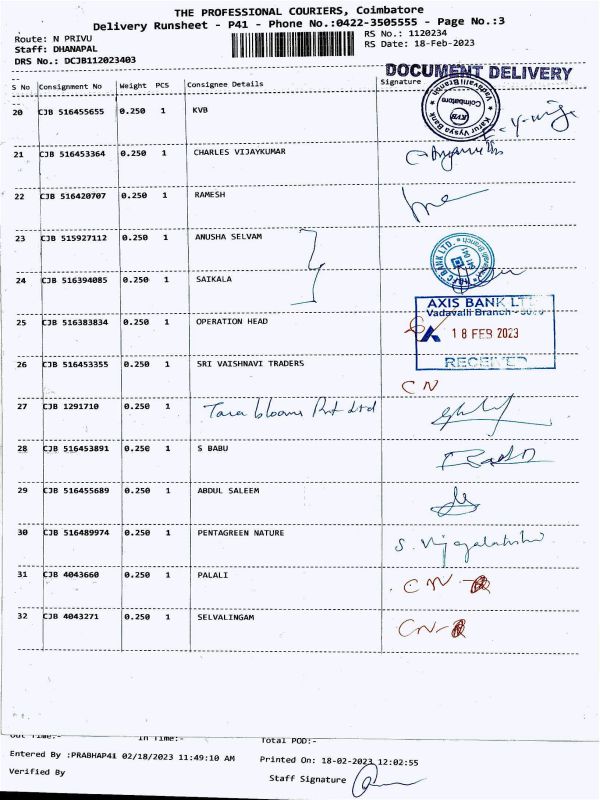 THE PROFESSIONAL COURIERS, Coimbatore
Delivery Runsheet - P41 - Phone No.:0422-3505555 - Page No.:3
Route: N PRIVU
RS No.: 1120234
Staff: DHANAPAL
RS Date: 18-Feb-2023
DRS No.: DCJB112023403
DOCUMENT DELIVERY
S No Consignment No Weight PCS Consignee Details Signature
Karur Vysya Bank
Vadavalli Branch
Coimbatore
KVB
20 CJB 516455655 0.250 1 KVB
21 CJB 516453364 0.250 1 CHARLES VIJAYKUMAR
22 CJB 516420707 0.250 1 RAMESH
23 CJB 515927112 0.250 1 ANUSHA SELVAM
24 CJB 516394085 0.250 1 SAIKALA
AXIS BANK LTD
Vadavalli Branch
25 CJB 516383834 0.250 1 OPERATION HEAD
18 FEB 2023
RECEIVED
26 CJB 516453355 0.250 1 SRI VAISHNAVI TRADERS
CN
27 CJB 1291710 0.250 1 Tara blooms Pvt Ltd
28 CJB 516453891 0.250 1 S BABU
29 CJB 516455689 0.250 1 ABDUL SALEEM
30 CJB 516489974 0.250 1 PENTAGREEN NATURE S. Vijayalakshmi
31 CJB 4043660 0.250 1 PALALI CN
32 CJB 4043271 0.250 1 SELVALINGAM CN
Out Time:- In Time:- Total POD:-
Entered By :PRABHAP41 02/18/2023 11:49:10 AM Printed On: 18-02-2023 12:02:55
Verified By Staff Signature